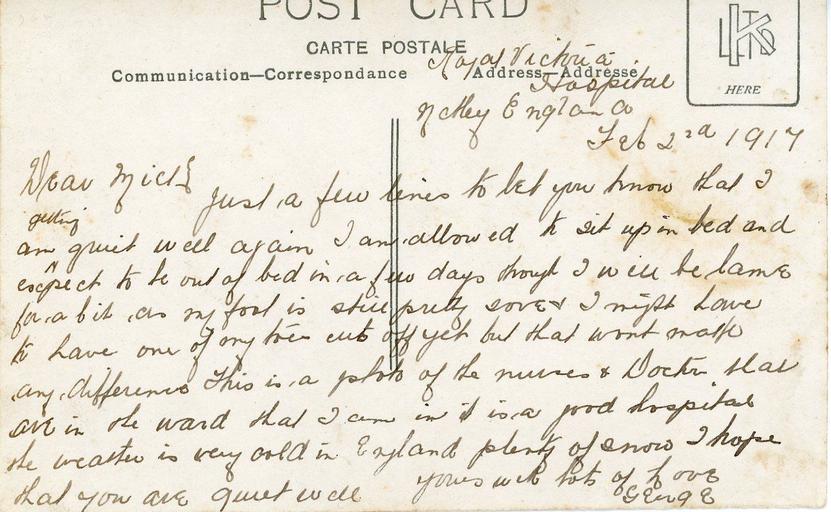 POST CARD
CARTE POSTALE
Communication—Correspondance
Address—Addresse
HERE
Royal Victoria
Hospital
Netley England
Feb 2nd 1917
Dear
Just a few lines to let you know that I
getting
am quiet well again I am allowed to sit up in bed and
exspect to be out of bed in a few days though I will be lame
for a bit as my foot is still pretty sore & I might have
to have one of my toes cut off yet but that wont make
any difference This is a photo of the nurses & Doctor that
are in the ward that I am in it is a good hospital
the weather is very cold in England plenty of snow I hope
that you are quiet well
yours with lots of Love
George